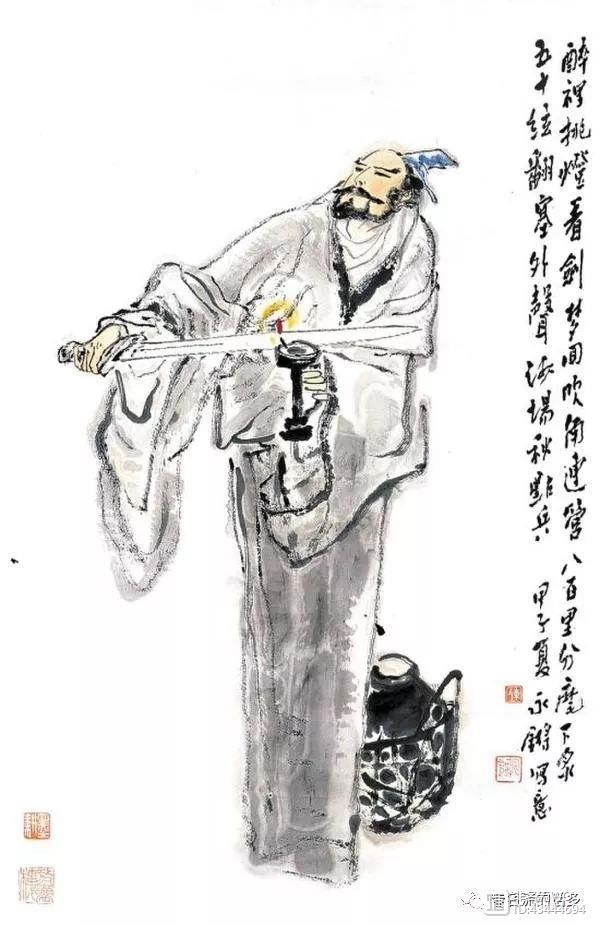 醉裡挑燈看劍梦回吹角連營八百里分麾下炙
五十絃翻塞外聲沙場秋點兵
甲子夏永鏘写意
ID:43444694